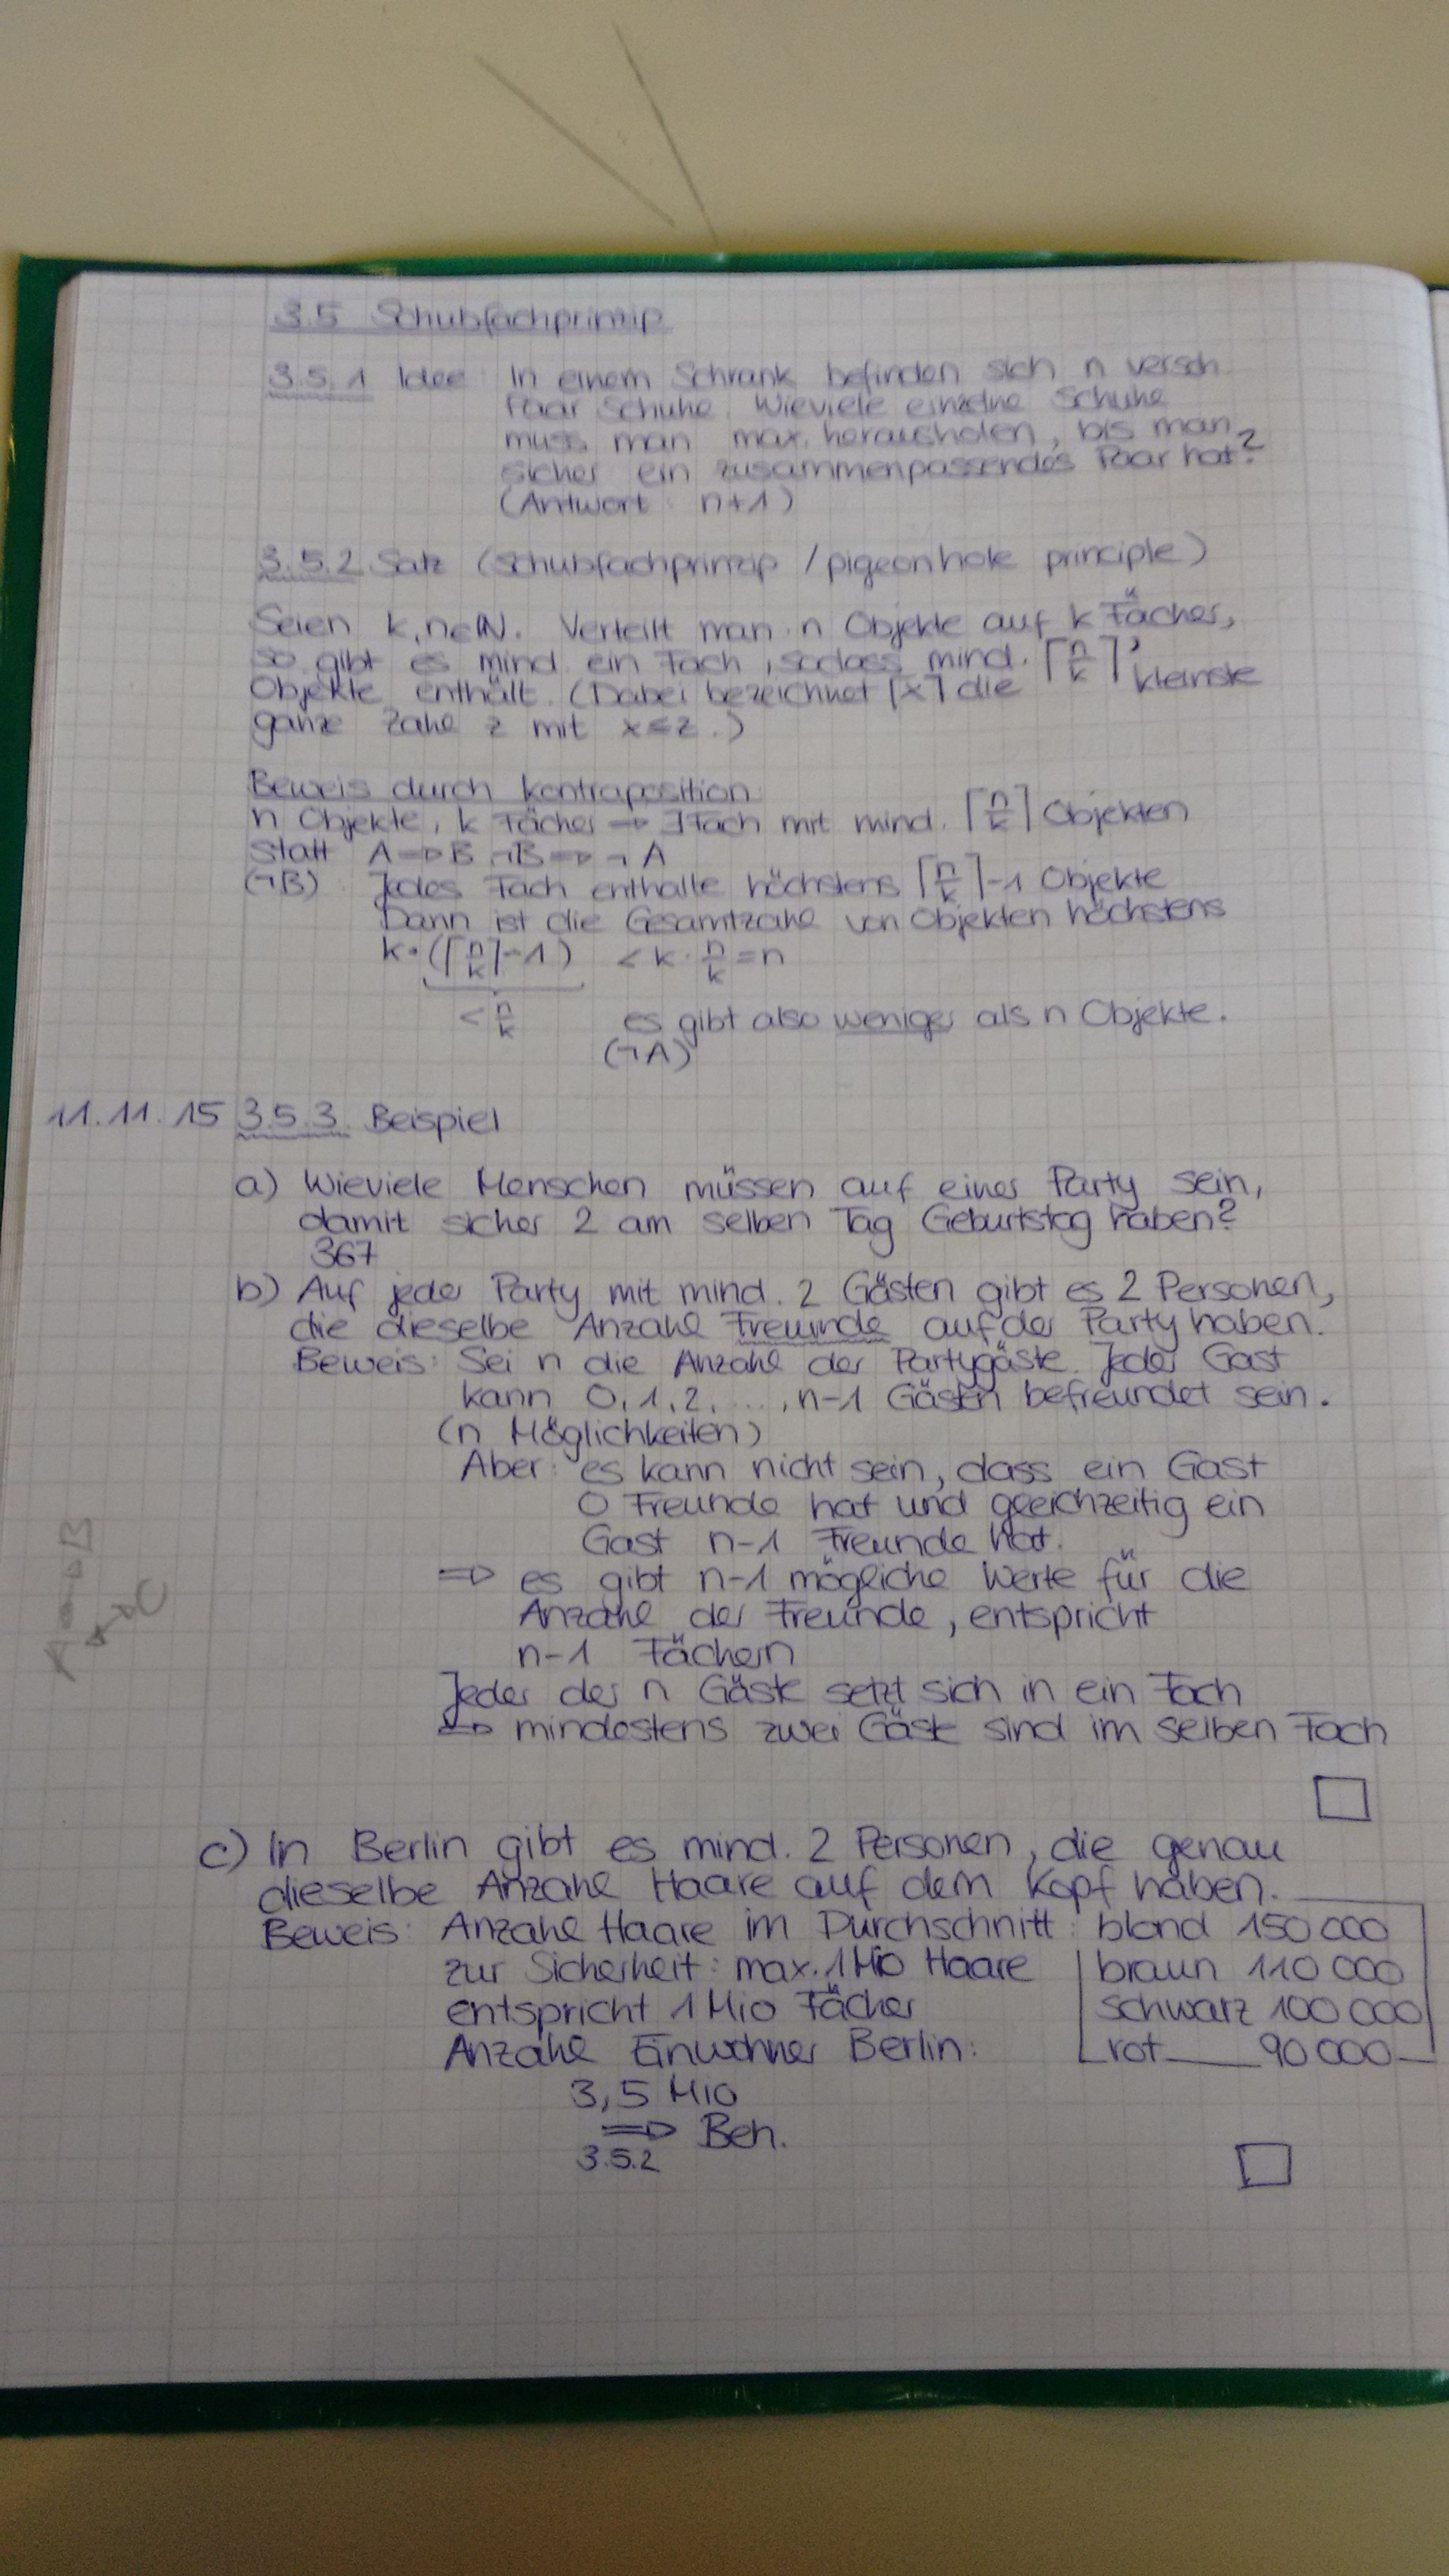 3.5 Schubfachprinzip
3.5.1 Idee: In einem Schrank befinden sich n versch.
Paar Schuhe. Wieviele einzelne Schuhe
muss man max. herausholen, bis man
sicher ein zusammenpassendes Paar hat?
(Antwort: n+1)
3.5.2 Satz (Schubfachprinzip / pigeonhole principle)
Seien k, n∈ℕ. Verteilt man n Objekte auf k Fächer,
so gibt es mind. ein Fach, sodass mind. ⌈n/k⌉,
Objekte enthält. (Dabei bezeichnet ⌈x⌉ die kleinste
ganze Zahl z mit x≤z.)
Beweis durch Kontraposition:
n Objekte, k Fächer ⇒ ∃Fach mit mind. ⌈n/k⌉ Objekten
statt A⇒B ¬B⇒¬A
(¬B): Jedes Fach enthalte höchstens ⌈n/k⌉-1 Objekte
Dann ist die Gesamtzahl von Objekten höchstens
k·(⌈n/k⌉-1) < k·n/k = n
< n/k es gibt also weniger als n Objekte.
(¬A)
11.11.15 3.5.3. Beispiel
a) Wieviele Menschen müssen auf einer Party sein,
damit sicher 2 am selben Tag Geburtstag haben?
367
b) Auf jeder Party mit mind. 2 Gästen gibt es 2 Personen,
die dieselbe Anzahl Freunde auf der Party haben.
Beweis: Sei n die Anzahl der Partygäste. Jeder Gast
kann 0, 1, 2, ..., n-1 Gästen befreundet sein.
(n Möglichkeiten)
Aber: es kann nicht sein, dass ein Gast
0 Freunde hat und gleichzeitig ein
Gast n-1 Freunde hat.
⇒ es gibt n-1 mögliche Werte für die
Anzahl der Freunde, entspricht
n-1 Fächern
Jeder der n Gäste setzt sich in ein Fach
⇒ mindestens zwei Gäste sind im selben Fach
□
c) In Berlin gibt es mind. 2 Personen, die genau
dieselbe Anzahl Haare auf dem Kopf haben.
Beweis: Anzahl Haare im Durchschnitt: blond 150 000
zur Sicherheit: max. 1 Mio Haare braun 110 000
entspricht 1 Mio Fächer schwarz 100 000
Anzahl Einwohner Berlin: rot 90 000
3,5 Mio
⇒ Beh.
3.5.2
□